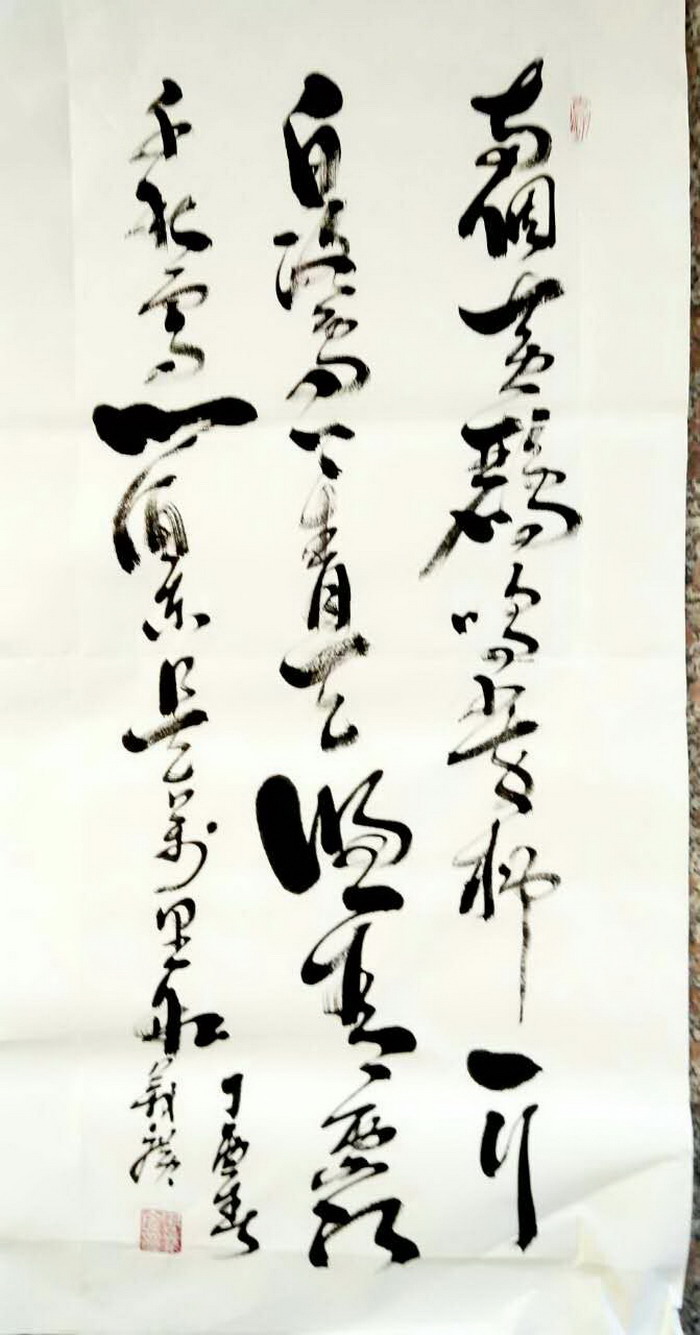 兩個黃鸝鳴翠柳一行
白鷺上青天窗含西嶺
千秋雪門泊東吳萬里船
丁酉春
義